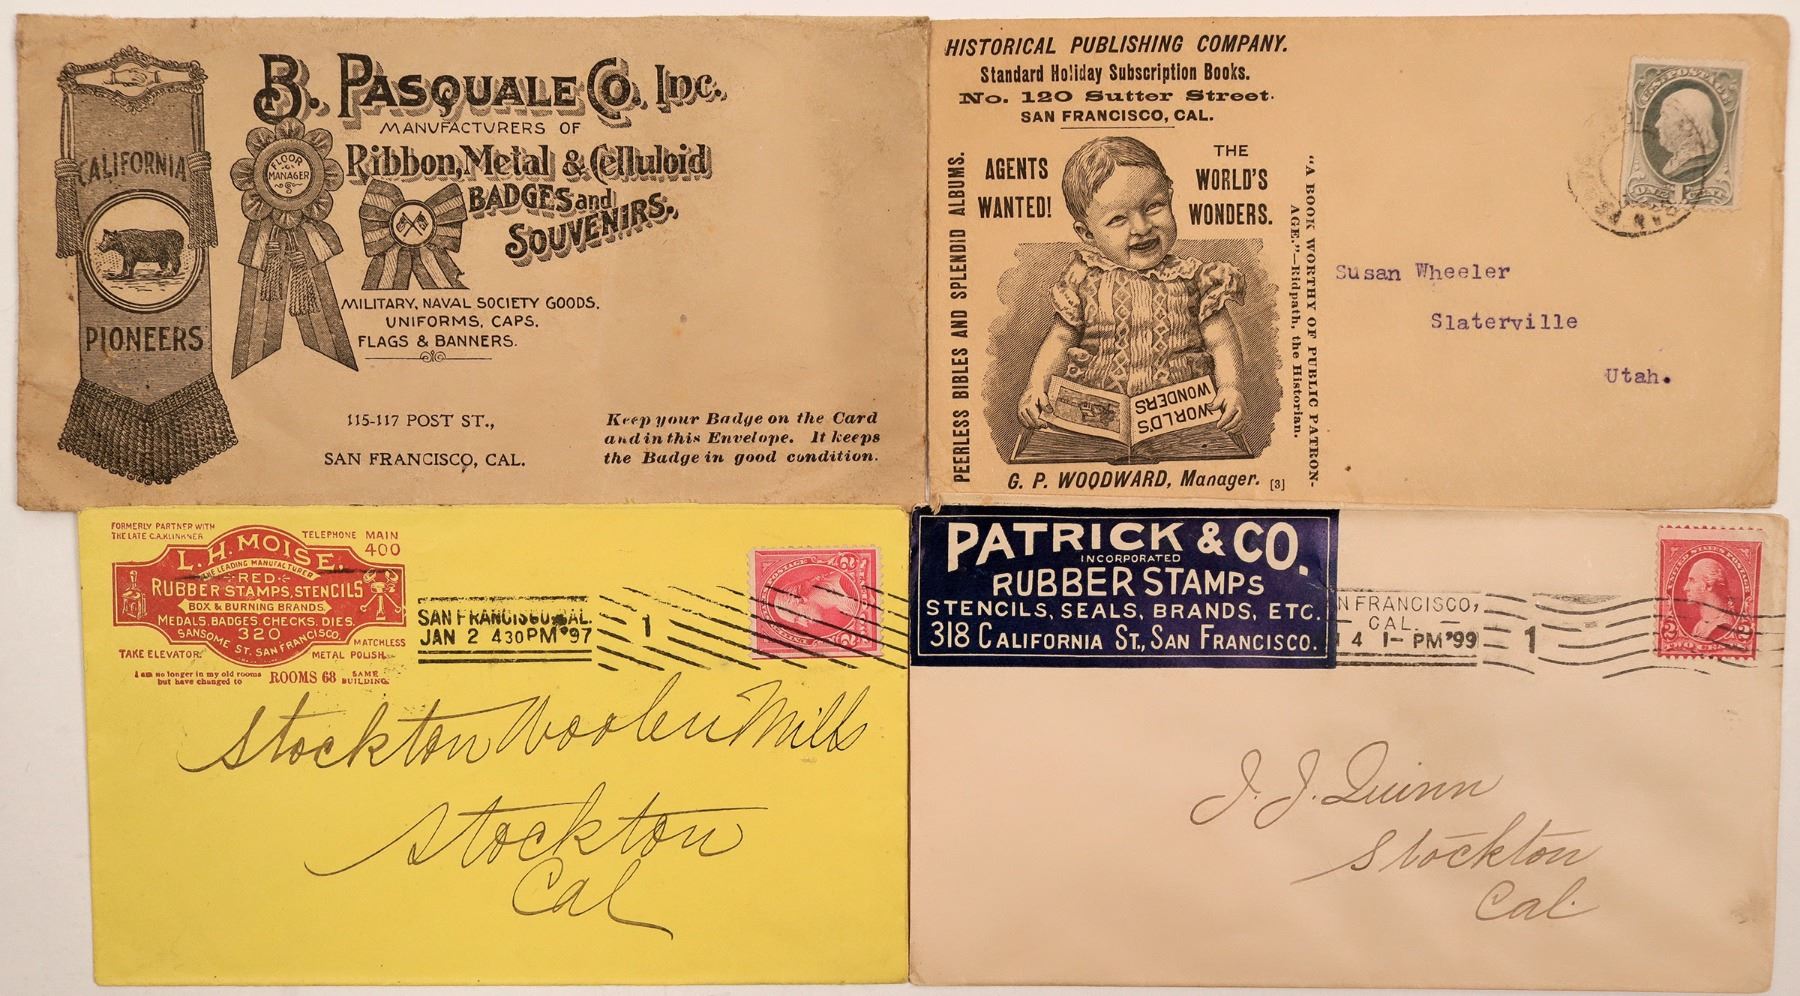 B. PASQUALE CO. Inc.
MANUFACTURERS OF
Ribbon, Metal & Celluloid
BADGES and
SOUVENIRS.
CALIFORNIA
PIONEERS
FLOOR
MANAGER
MILITARY, NAVAL SOCIETY GOODS.
UNIFORMS, CAPS,
FLAGS & BANNERS.
115-117 POST ST.,
SAN FRANCISCO, CAL.
Keep your Badge on the Card
and in this Envelope. It keeps
the Badge in good condition.
HISTORICAL PUBLISHING COMPANY.
Standard Holiday Subscription Books.
No. 120 Sutter Street.
SAN FRANCISCO, CAL.
PEERLESS BIBLES AND SPLENDID ALBUMS.
AGENTS
WANTED!
THE
WORLD'S
WONDERS.
"A BOOK WORTHY OF PUBLIC PATRON-
AGE."—Ridpath, the Historian.
WORLD'S
WONDERS
G. P. WOODWARD, Manager. [3]
Susan Wheeler
Slaterville
Utah.
FORMERLY PARTNER WITH
THE LATE C.A. KLINKNER
TELEPHONE MAIN
400
L.H. MOISE.
THE LEADING MANUFACTURER
RED
RUBBER STAMPS, STENCILS
BOX & BURNING BRANDS.
MEDALS, BADGES, CHECKS, DIES.
320
SANSOME ST. SAN FRANCISCO.
TAKE ELEVATOR.
MATCHLESS
METAL POLISH.
I am no longer in my old rooms
but have changed to
ROOMS 68
SAME
BUILDING.
SAN FRANCISCO, CAL.
JAN 2 430PM '97
1
Stockton Woolen Mills
Stockton
Cal
PATRICK & CO.
INCORPORATED
RUBBER STAMPS
STENCILS, SEALS, BRANDS, ETC.
318 CALIFORNIA ST., SAN FRANCISCO.
N FRANCISCO,
CAL.
4 1- PM '99
1
J. J. Quinn
Stockton
Cal.